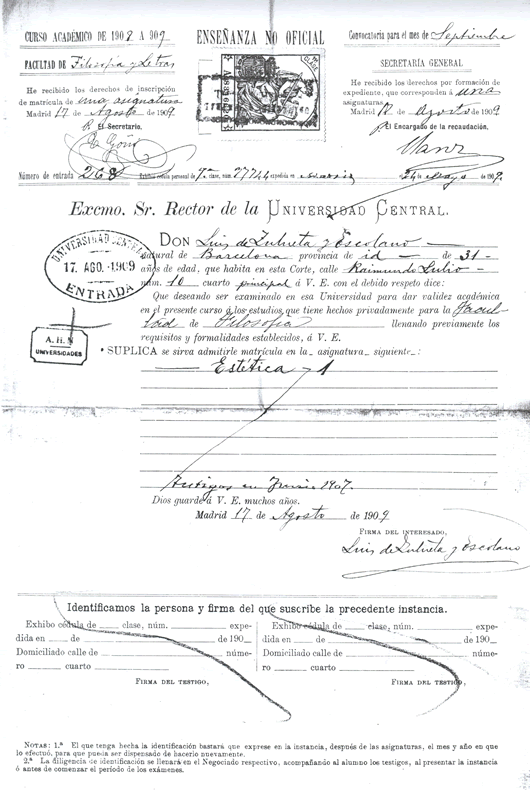 CURSO ACADÉMICO DE 1908 A 909
ENSEÑANZA NO OFICIAL
Convocatoria para el mes de Septiembre
FACULTAD DE Filosofía y Letras
SECRETARÍA GENERAL
He recibido los derechos de inscripción
de matrícula de una asignatura
Madrid 17 de Agosto de 1909
El Secretario,
He recibido los derechos por formación de
expediente, que corresponden á una
asignaturas
Madrid 12 de Agosto de 1909
El Encargado de la recaudación,
Número de entrada 268
Exhibe cédula personal de 7ª clase, núm. 27744 expedida en Madrid 24 Mayo de 1909.
Excmo. Sr. Rector de la UNIVERSIDAD CENTRAL.
UNIVERSIDAD CENTRAL
17. AGO.-1909
ENTRADA
A. H. N
UNIVERSIDADES
DON Luis de Zulueta y Escolano
natural de Barcelona provincia de id de 31
años de edad, que habita en esta Corte, calle Raimundo Lulio
núm. 10 cuarto principal á V. E. con el debido respeto dice:
Que deseando ser examinado en esa Universidad para dar validez académica
en el presente curso á los estudios que tiene hechos privadamente para la Facul-
tad de Filosofía llenando previamente los
requisitos y formalidades establecidos, á V. E.
SUPLICA se sirva admitirle matrícula en la asignatura siguiente:
Estética - 1
Testigos en Junio 1907.
Dios guarde á V. E. muchos años.
Madrid 17 de Agosto de 1909
FIRMA DEL INTERESADO,
Luis de Zulueta y Escolano
Identificamos la persona y firma del que suscribe la precedente instancia.
Exhibo cédula de clase, núm. expe-
dida en de de 190
Domiciliado calle de núme-
ro cuarto
FIRMA DEL TESTIGO,
Exhibo cédula de clase, núm. expe-
dida en de de 190
Domiciliado calle de núme-
ro cuarto
FIRMA DEL TESTIGO,
NOTAS: 1.ª El que tenga hecha la identificación bastará que exprese en la instancia, después de las asignaturas, el mes y año en que
lo efectuó, para que pueda ser dispensado de hacerlo nuevamente.
2.ª La diligencia de identificación se llenará en el Negociado respectivo, acompañando al alumno los testigos, al presentar la instancia
ó antes de comenzar el período de los exámenes.